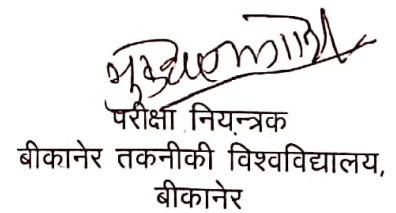 परीक्षा नियन्त्रक
बीकानेर तकनीकी विश्वविद्यालय,
बीकानेर